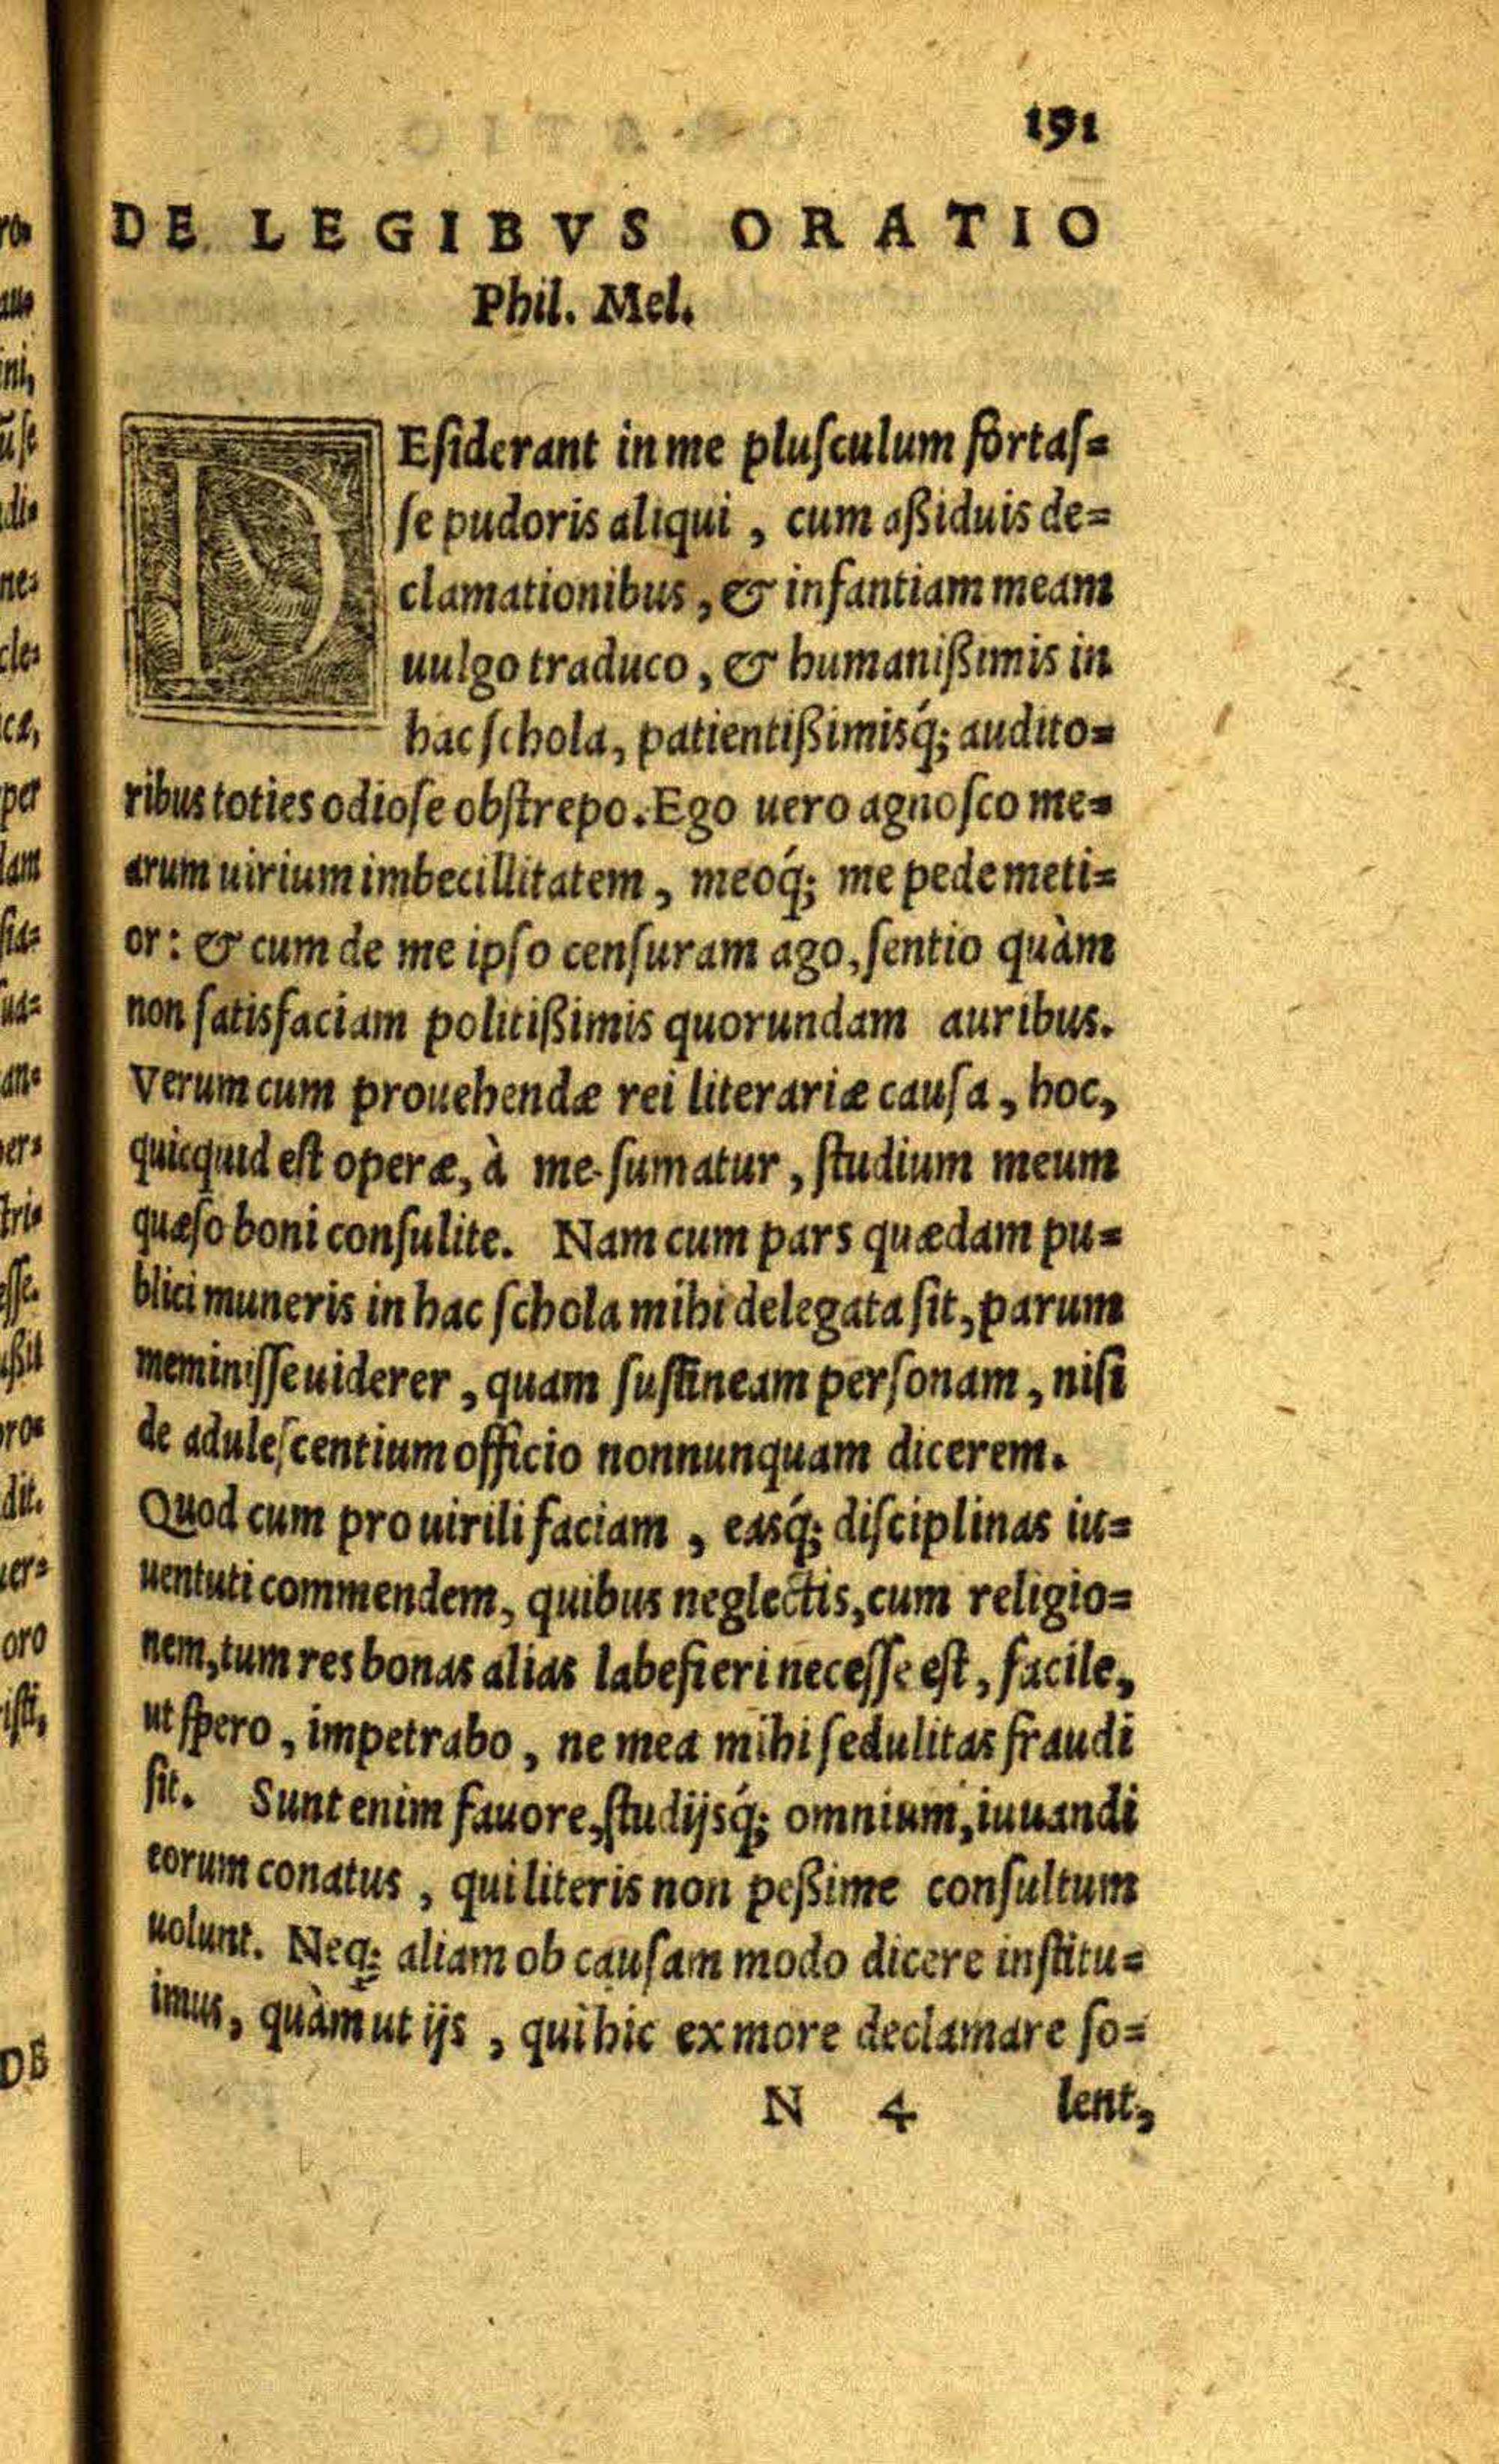 191
DE LEGIBVS ORATIO
Phil. Mel.
DEſiderant in me pluſculum fortaſ=
ſe pudoris aliqui, cum aßiduis de=
clamationibus, & infantiam meam
uulgo traduco, & humanißimis in
hac ſchola, patientißimisq́; audito=
ribus toties odioſe obſtrepo. Ego uero agnoſco me=
arum uirium imbecillitatem, meoq́; me pede meti=
or: & cum de me ipſo cenſuram ago, ſentio quàm
non ſatisfaciam politißimis quorundam auribus.
Verum cum prouehendæ rei literariæ cauſa, hoc,
quicquid eſt operæ, à me ſumatur, ſtudium meum
quæſo boni conſulite. Nam cum pars quædam pu=
blici muneris in hac ſchola mihi delegata ſit, parum
meminiſſe uiderer, quam ſuſtineam perſonam, niſi
de aduleſcentium officio nonnunquam dicerem.
Quod cum pro uirili faciam, easq́; diſciplinas iu=
uentuti commendem, quibus neglectis, cum religio=
nem, tum res bonas alias labefieri neceſſe eſt, facile,
ut ſpero, impetrabo, ne mea mihi ſedulitas fraudi
ſit. Sunt enim fauore, ſtudijsq́; omnium, iuuandi
eorum conatus, qui literis non peßime conſultum
uolunt. Neq; aliam ob cauſam modo dicere inſtitu=
imus, quàm ut ijs, qui hic ex more declamare ſo=
N 4 lent,